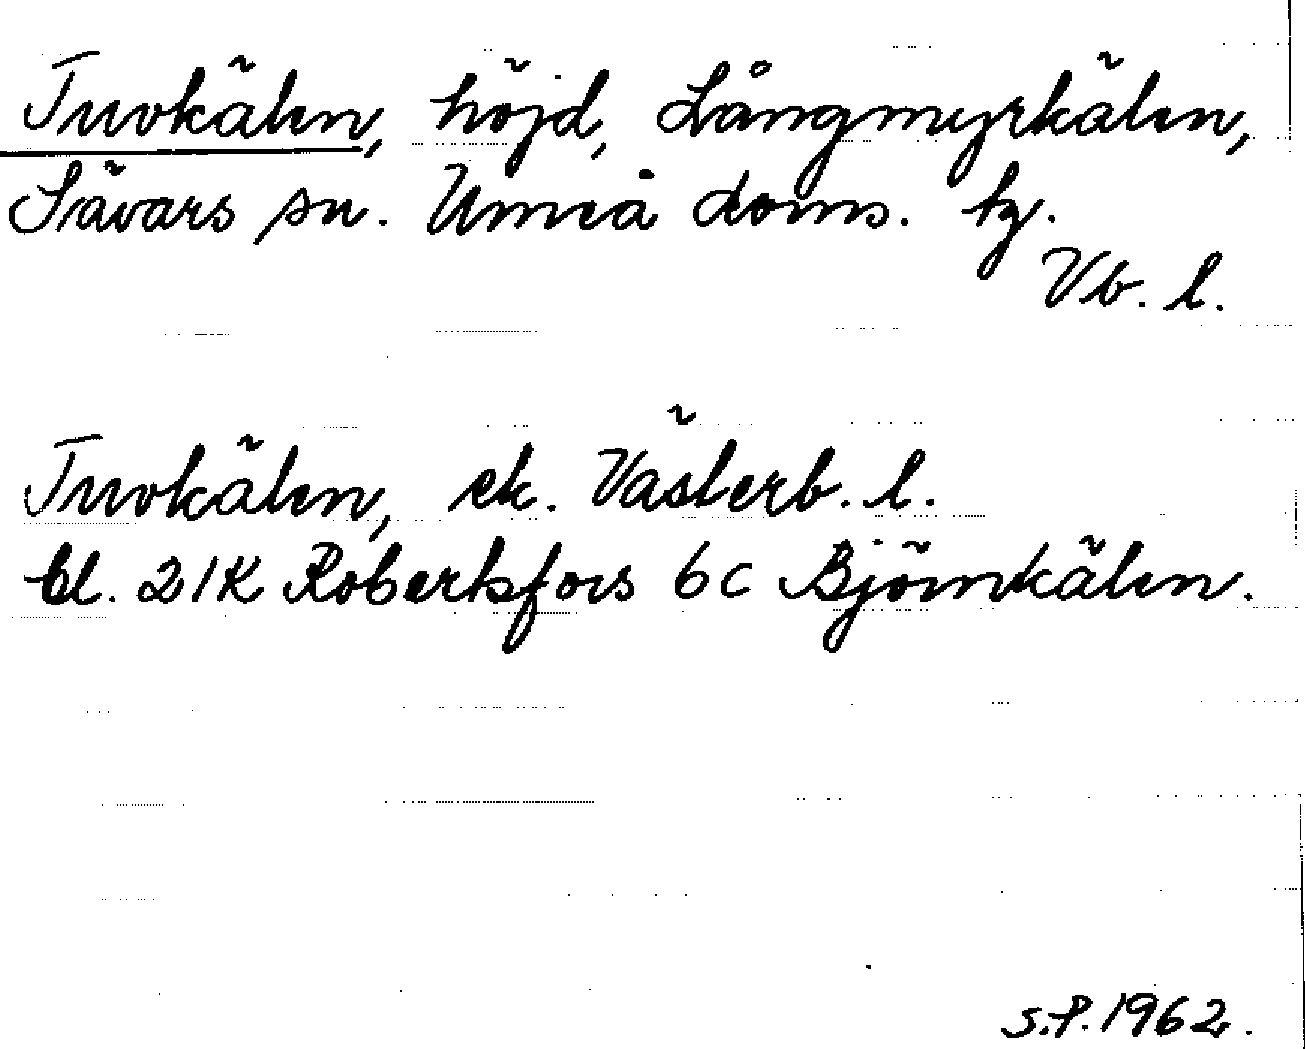 Tuvkälen, höjd, Långmyrkälen,
Sävars sn. Umeå doms. tg.
Vb. l.
Tuvkälen, ek. Västerb. l.
bl. 21K Robertsfors 6c Björnkälen.
S.P. 1962.